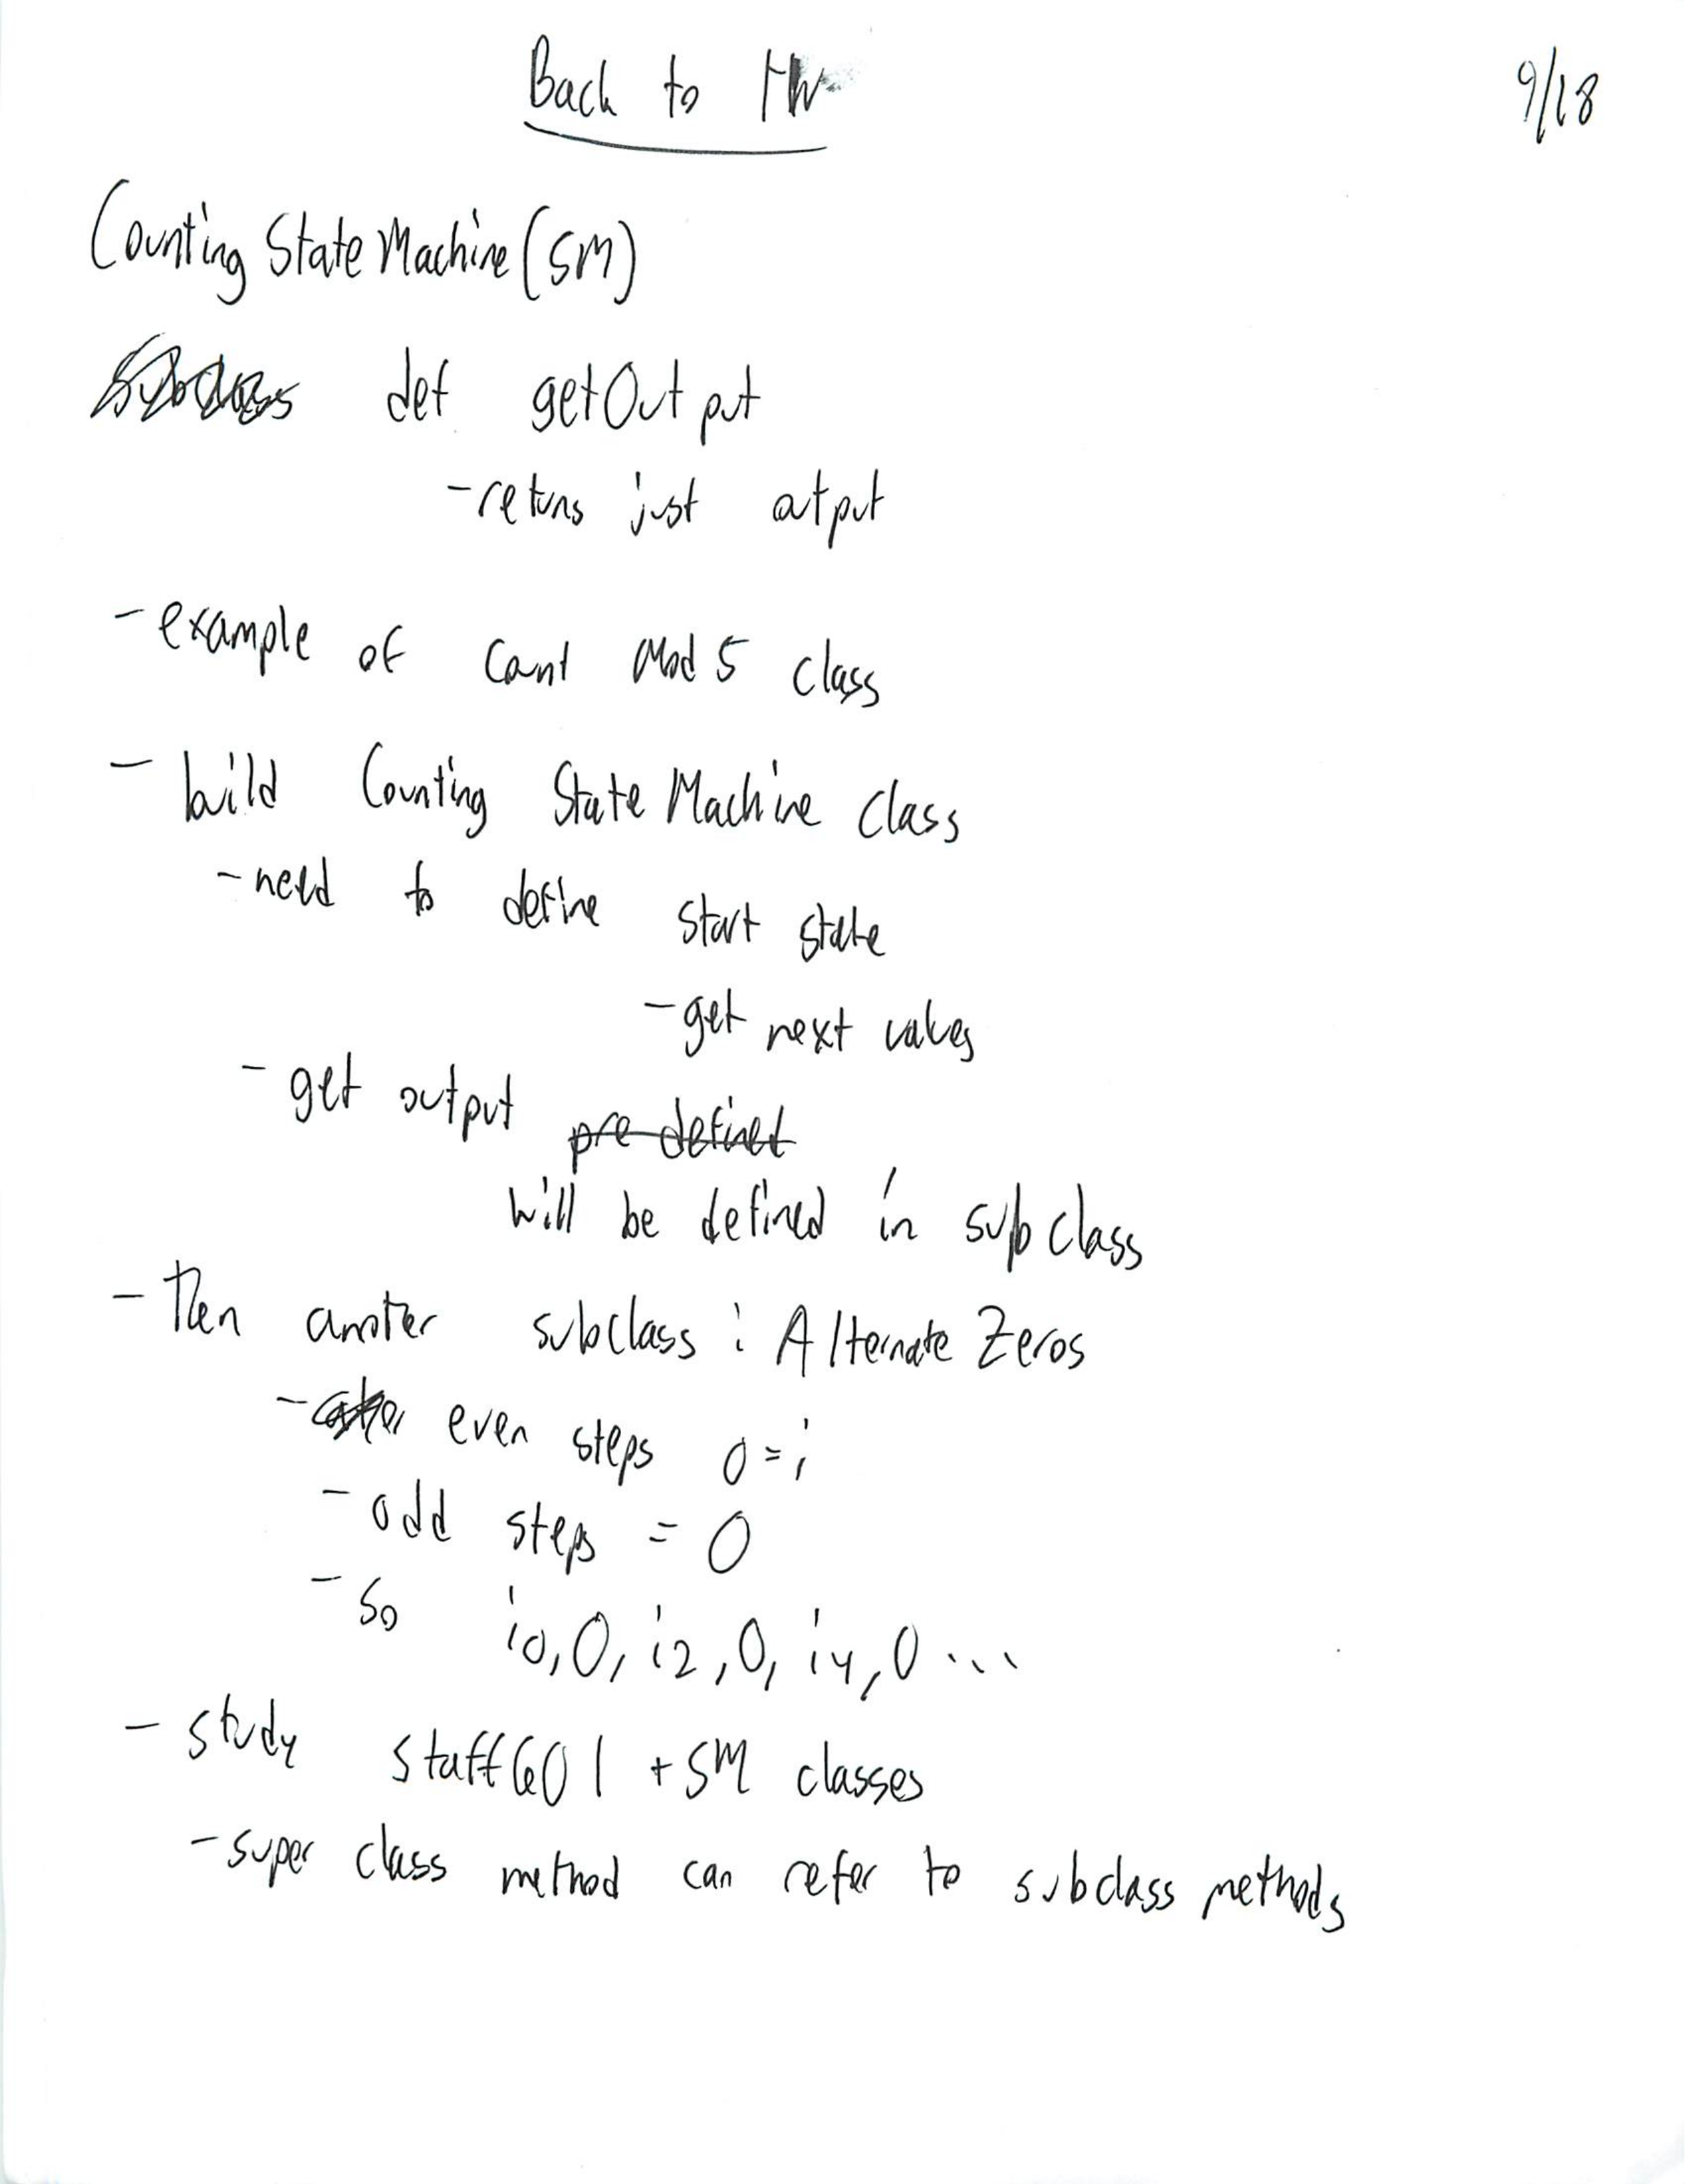 Back to HW
9/18
Counting State Machine (SM)
Subclass def getOutput
- returns just output
- example of Count Mod 5 class
- build Counting State Machine Class
- need to define start state
- get next values
- get output pre defined
will be defined in subclass
- Then another subclass : Alternate Zeros
- even steps o = i
- odd steps = 0
- So i0, 0, i2, 0, i4, 0 ...
- study staff 601 + SM classes
- super class method can refer to subclass methods